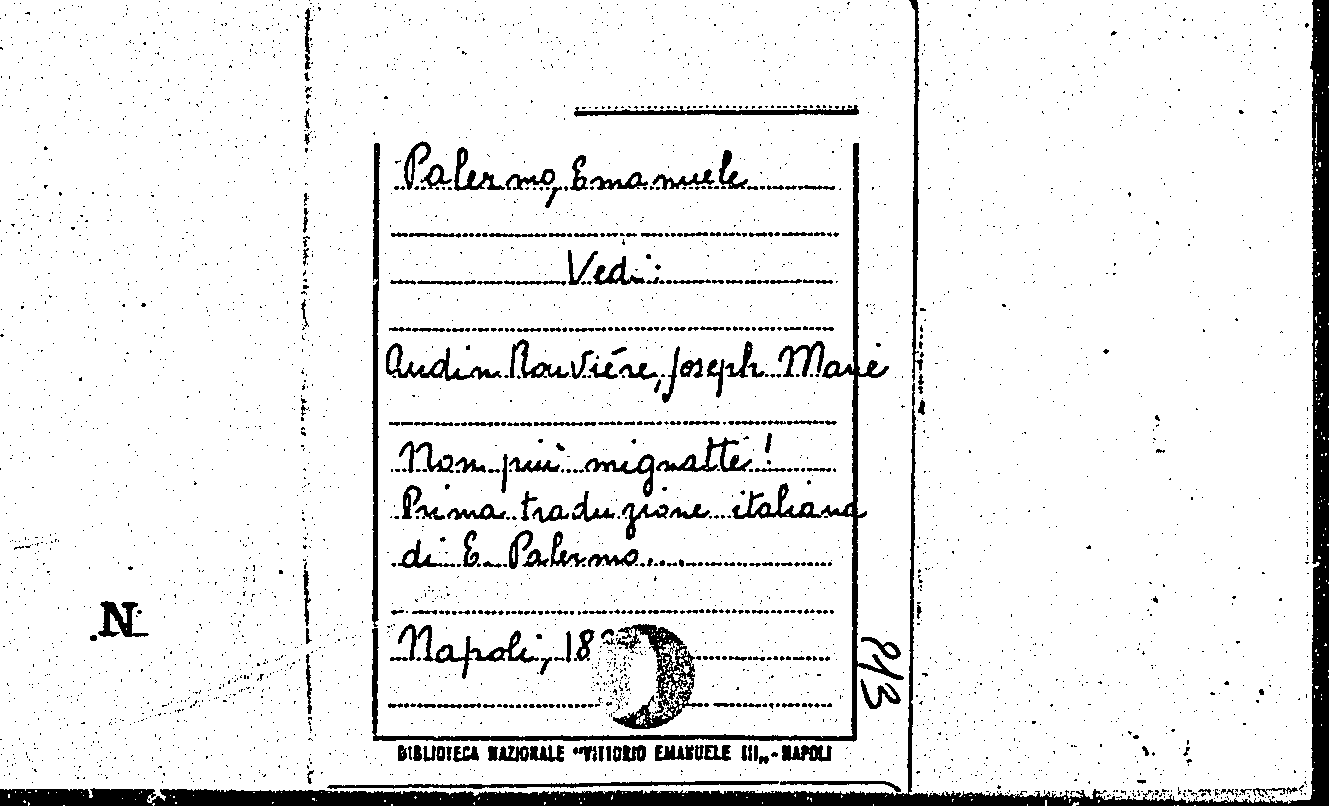 Palermo, Emanuele
Vedi:
Audin Rouviére, Joseph Marie
Non più mignatte!
Prima traduzione italiana
di E. Palermo....
Napoli, 18
BIBLIOTECA NAZIONALE "VITTORIO EMANUELE III„ - NAPOLI
N